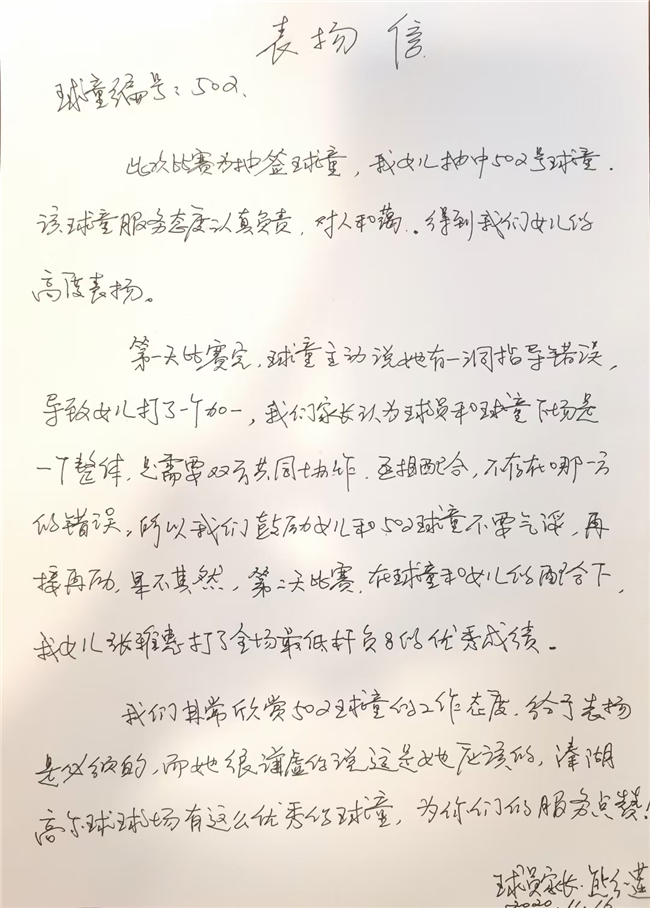 表扬信
球童编号:502.
此次比赛为抽签球童,我女儿抽中502号球童.
该球童服务态度认真负责,对人和蔼.得到我们女儿的
高度表扬。
第一天比赛完,球童主动说她有一洞指导错误,
导致女儿打了一个加一,我们家长认为球员和球童下场是
一个整体,是需要双方共同协作,互相配合,不存在哪一方
的错误,所以我们鼓励女儿和502球童不要气馁,再
接再励,果不其然,第二天比赛,在球童和女儿的配合下,
我女儿张雅惠打了全场最低杆负8的优秀成绩。
我们非常欣赏502球童的工作态度,给予表扬
是必须的,而她很谦虚的说这是她应该的,湊湖
高尔球球场有这么优秀的球童,为你们的服务点赞!
球员家长:熊
2020.11.16